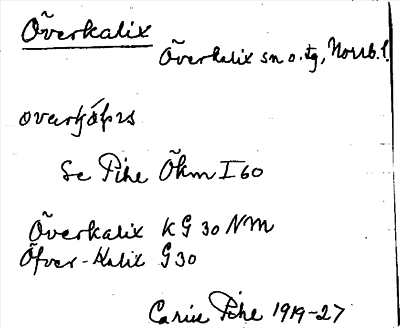 Överkalix
Överkalix sn o. tg, Norrb. l.
Se Pihl Ökm I 60
Överkalix KG 30 NM
Öfver-Kalix G 30
Carin Pihl 1919-27